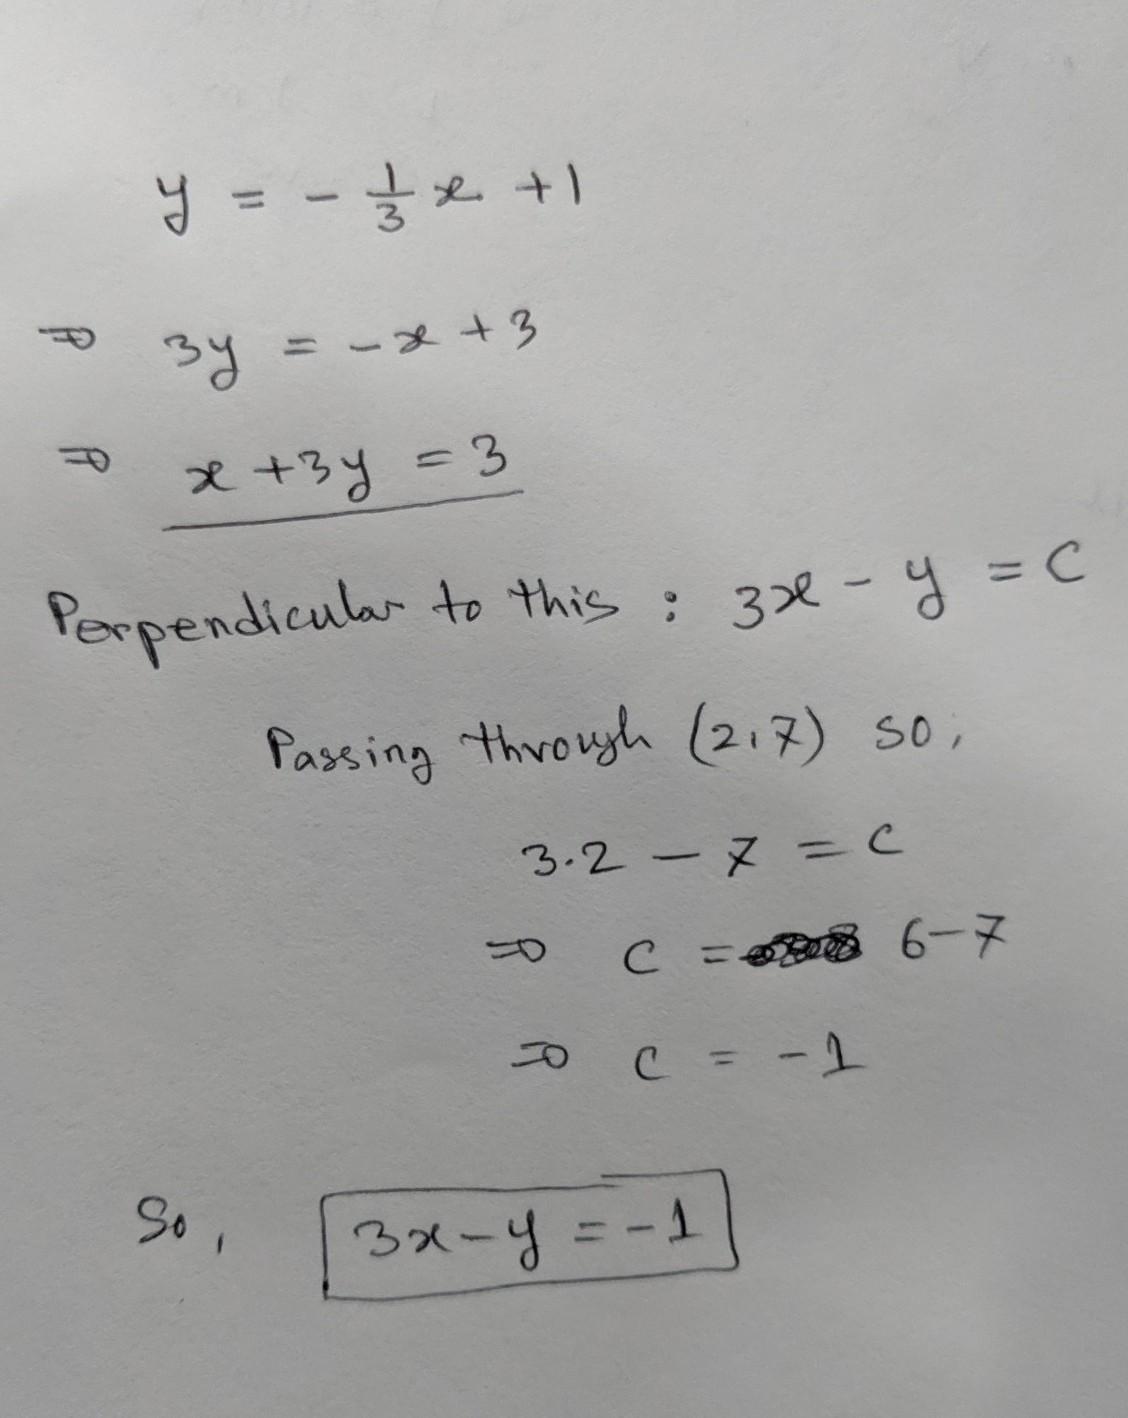 y = - 1/3 x + 1
⇒ 3y = -x + 3
⇒ x + 3y = 3
Perpendicular to this : 3x - y = C
Passing through (2,7) so,
3.2 - 7 = C
⇒ C = 6-7
⇒ C = -1
So, 3x - y = -1